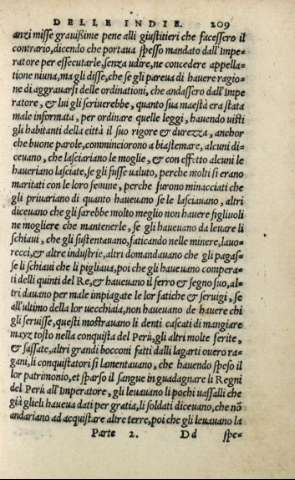 DELLE INDIE. 209
anzi misse grauißime pene alli giustitieri che facessero il
contrario, dicendo che portaua spesso mandato dall'Impe-
ratore per essecutarle, senza udire, ne concedere appella-
tione niuna, ma gli disse, che se gli pareua di hauere ragio-
ne di aggrauarsi delle ordinationi, che andassero dall'Impe
ratore, & lui gli scriuerebbe, quanto sua maestà era stata
male informata, per ordinare quelle leggi, hauendo uisti
gli habitanti della città il suo rigore & durezza, anchor
che buone parole, comminciorono a biastemare, alcuni di-
ceuano, che lasciariano le moglie, & con effetto alcuni le
haueriano lasciate, se gli fusse ualuto, perche molti si erano
maritati con le loro femine, perche furono minacciati che
gli priuariano di quanto haueuano se le lasciauano, altri
diceuano che gli sarebbe molto meglio non hauere figliuoli
ne mogliere che mantenerle, se gli haueuano da leuare li
schiaui, che gli sustentauano, faticando nelle minere, lauo-
recci, & altre industrie, altri domandauano che gli pagas-
se li schiaui che li pigliaua, poi che gli haueuano compera-
ti delli quinti del Re, & haueuano il ferro & segno suo, al-
tri dauano per male impiegate le lor fatiche & seruigi, se
all'ultimo della lor uecchiaia, non haueuano de hauere chi
gli seruisse, questi mostrauano li denti cascati di mangiare
mayz tosto nella conquista del Perù, gli altri molte ferite,
& sassate, altri grandi bocconi fatti dalli lagarti ouero ra-
gani, li conquistatori si lamentauano, che hauendo speso il
lor patrimonio, et sparso il sangue in guadagnare li Regni
del Perù all'Imperatore, gli leuauano li pochi uassalli che
già glieli haueua dati per gratia, li soldati diceuano, che nō
andariano ad acquistare altre terre, poi che gli leuauano la
Parte 2. Dd spe-